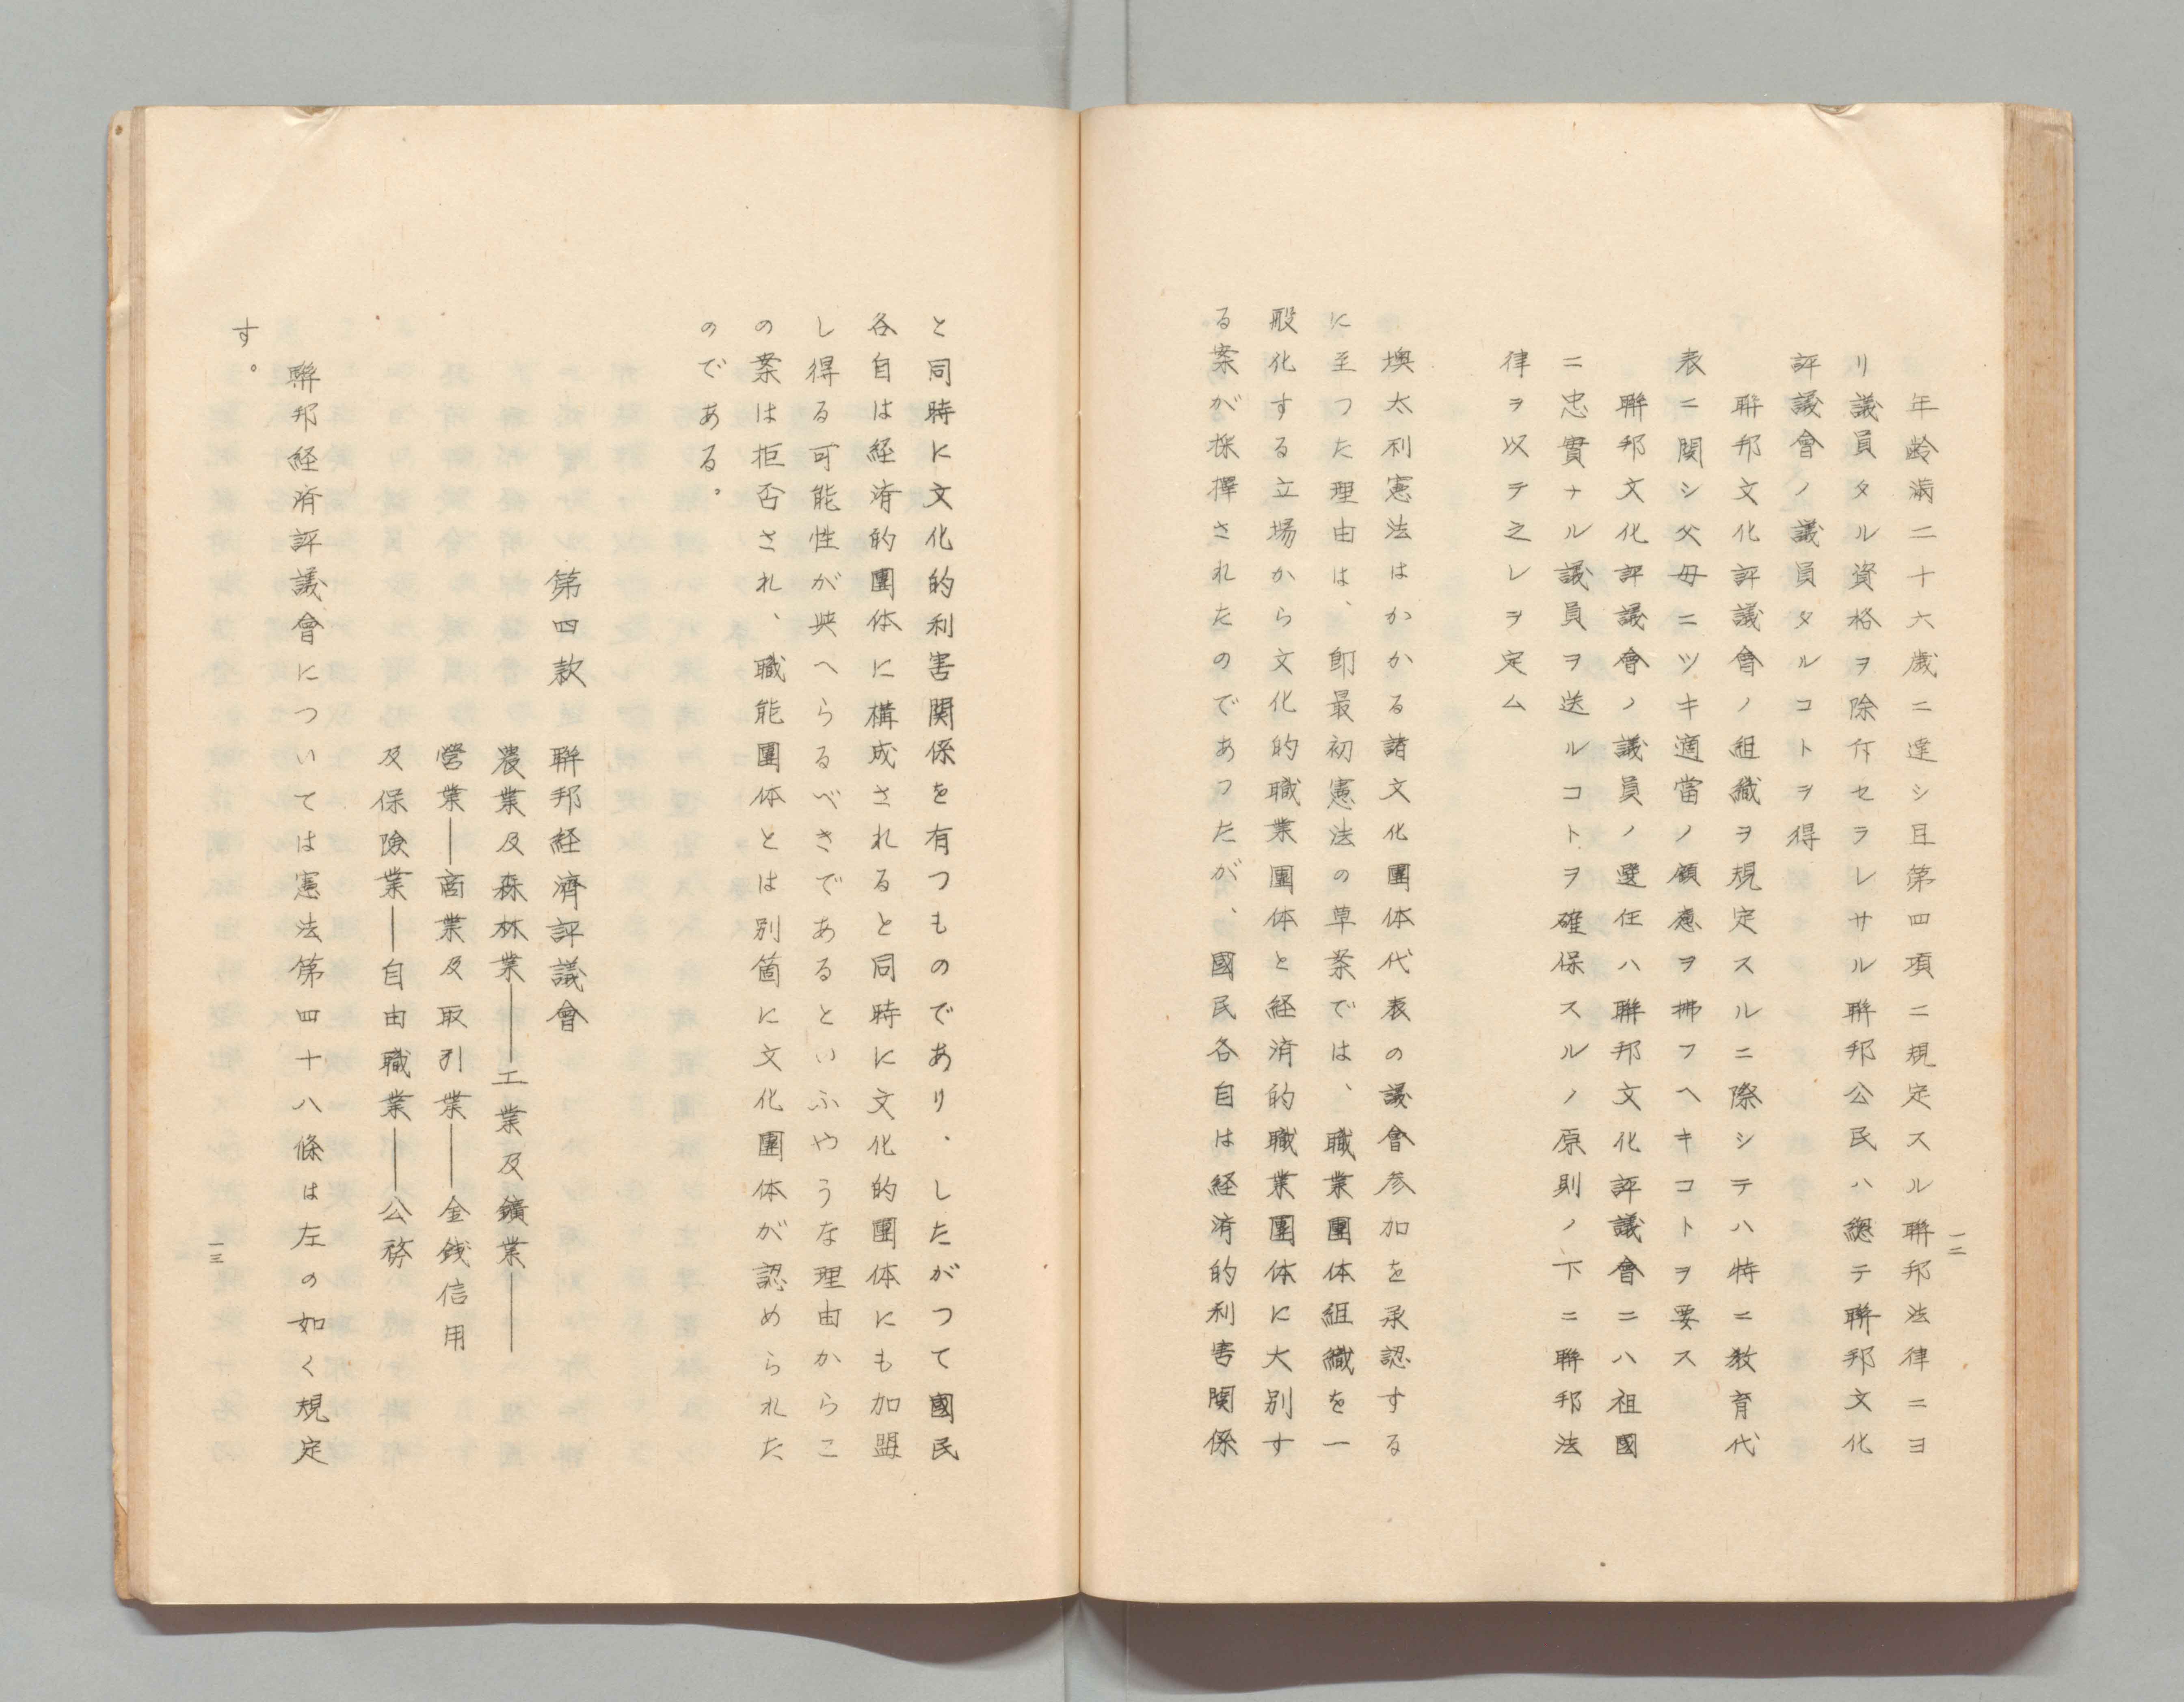 一二
年齢滿二十六歳ニ達シ且第四項ニ規定スル聯邦法律ニヨ
リ議員タル資格ヲ除斥セラレサル聯邦公民ハ總テ聯邦文化
評議會ノ議員タルコトヲ得
聯邦文化評議會ノ組織ヲ規定スルニ際シテハ特ニ教育代
表ニ関シ父母ニツキ適當ノ顧慮ヲ拂フヘキコトヲ要ス
聯邦文化評議會ノ議員ノ選任ハ聯邦文化評議會ニハ祖國
ニ忠實ナル議員ヲ送ルコトヲ確保スルノ原則ノ下ニ聯邦法
律ヲ以テ之レヲ定ム
墺太利憲法はかかる諸文化團体代表の議會参加を承認する
に至つた理由は、卽最初憲法の草案では、職業團体組織を一
般化する立場から文化的職業團体と経済的職業團体に大別す
る案が採擇されたのであつたが、國民各自は経済的利害関係
と同時に文化的利害関係を有つものであり、したがつて國民
各自は経済的團体に構成されると同時に文化的團体にも加盟
し得る可能性が與へらるべきであるといふやうな理由からこ
の案は拒否され、職能團体とは別箇に文化團体が認められた
のである。
第四款　聯邦経濟評議會
農業及森林業――工業及鑛業――
営業――商業及取引業――金銭信用
及保險業――自由職業――公務
聯邦経済評議會については憲法第四十八條は左の如く規定
す。
一三